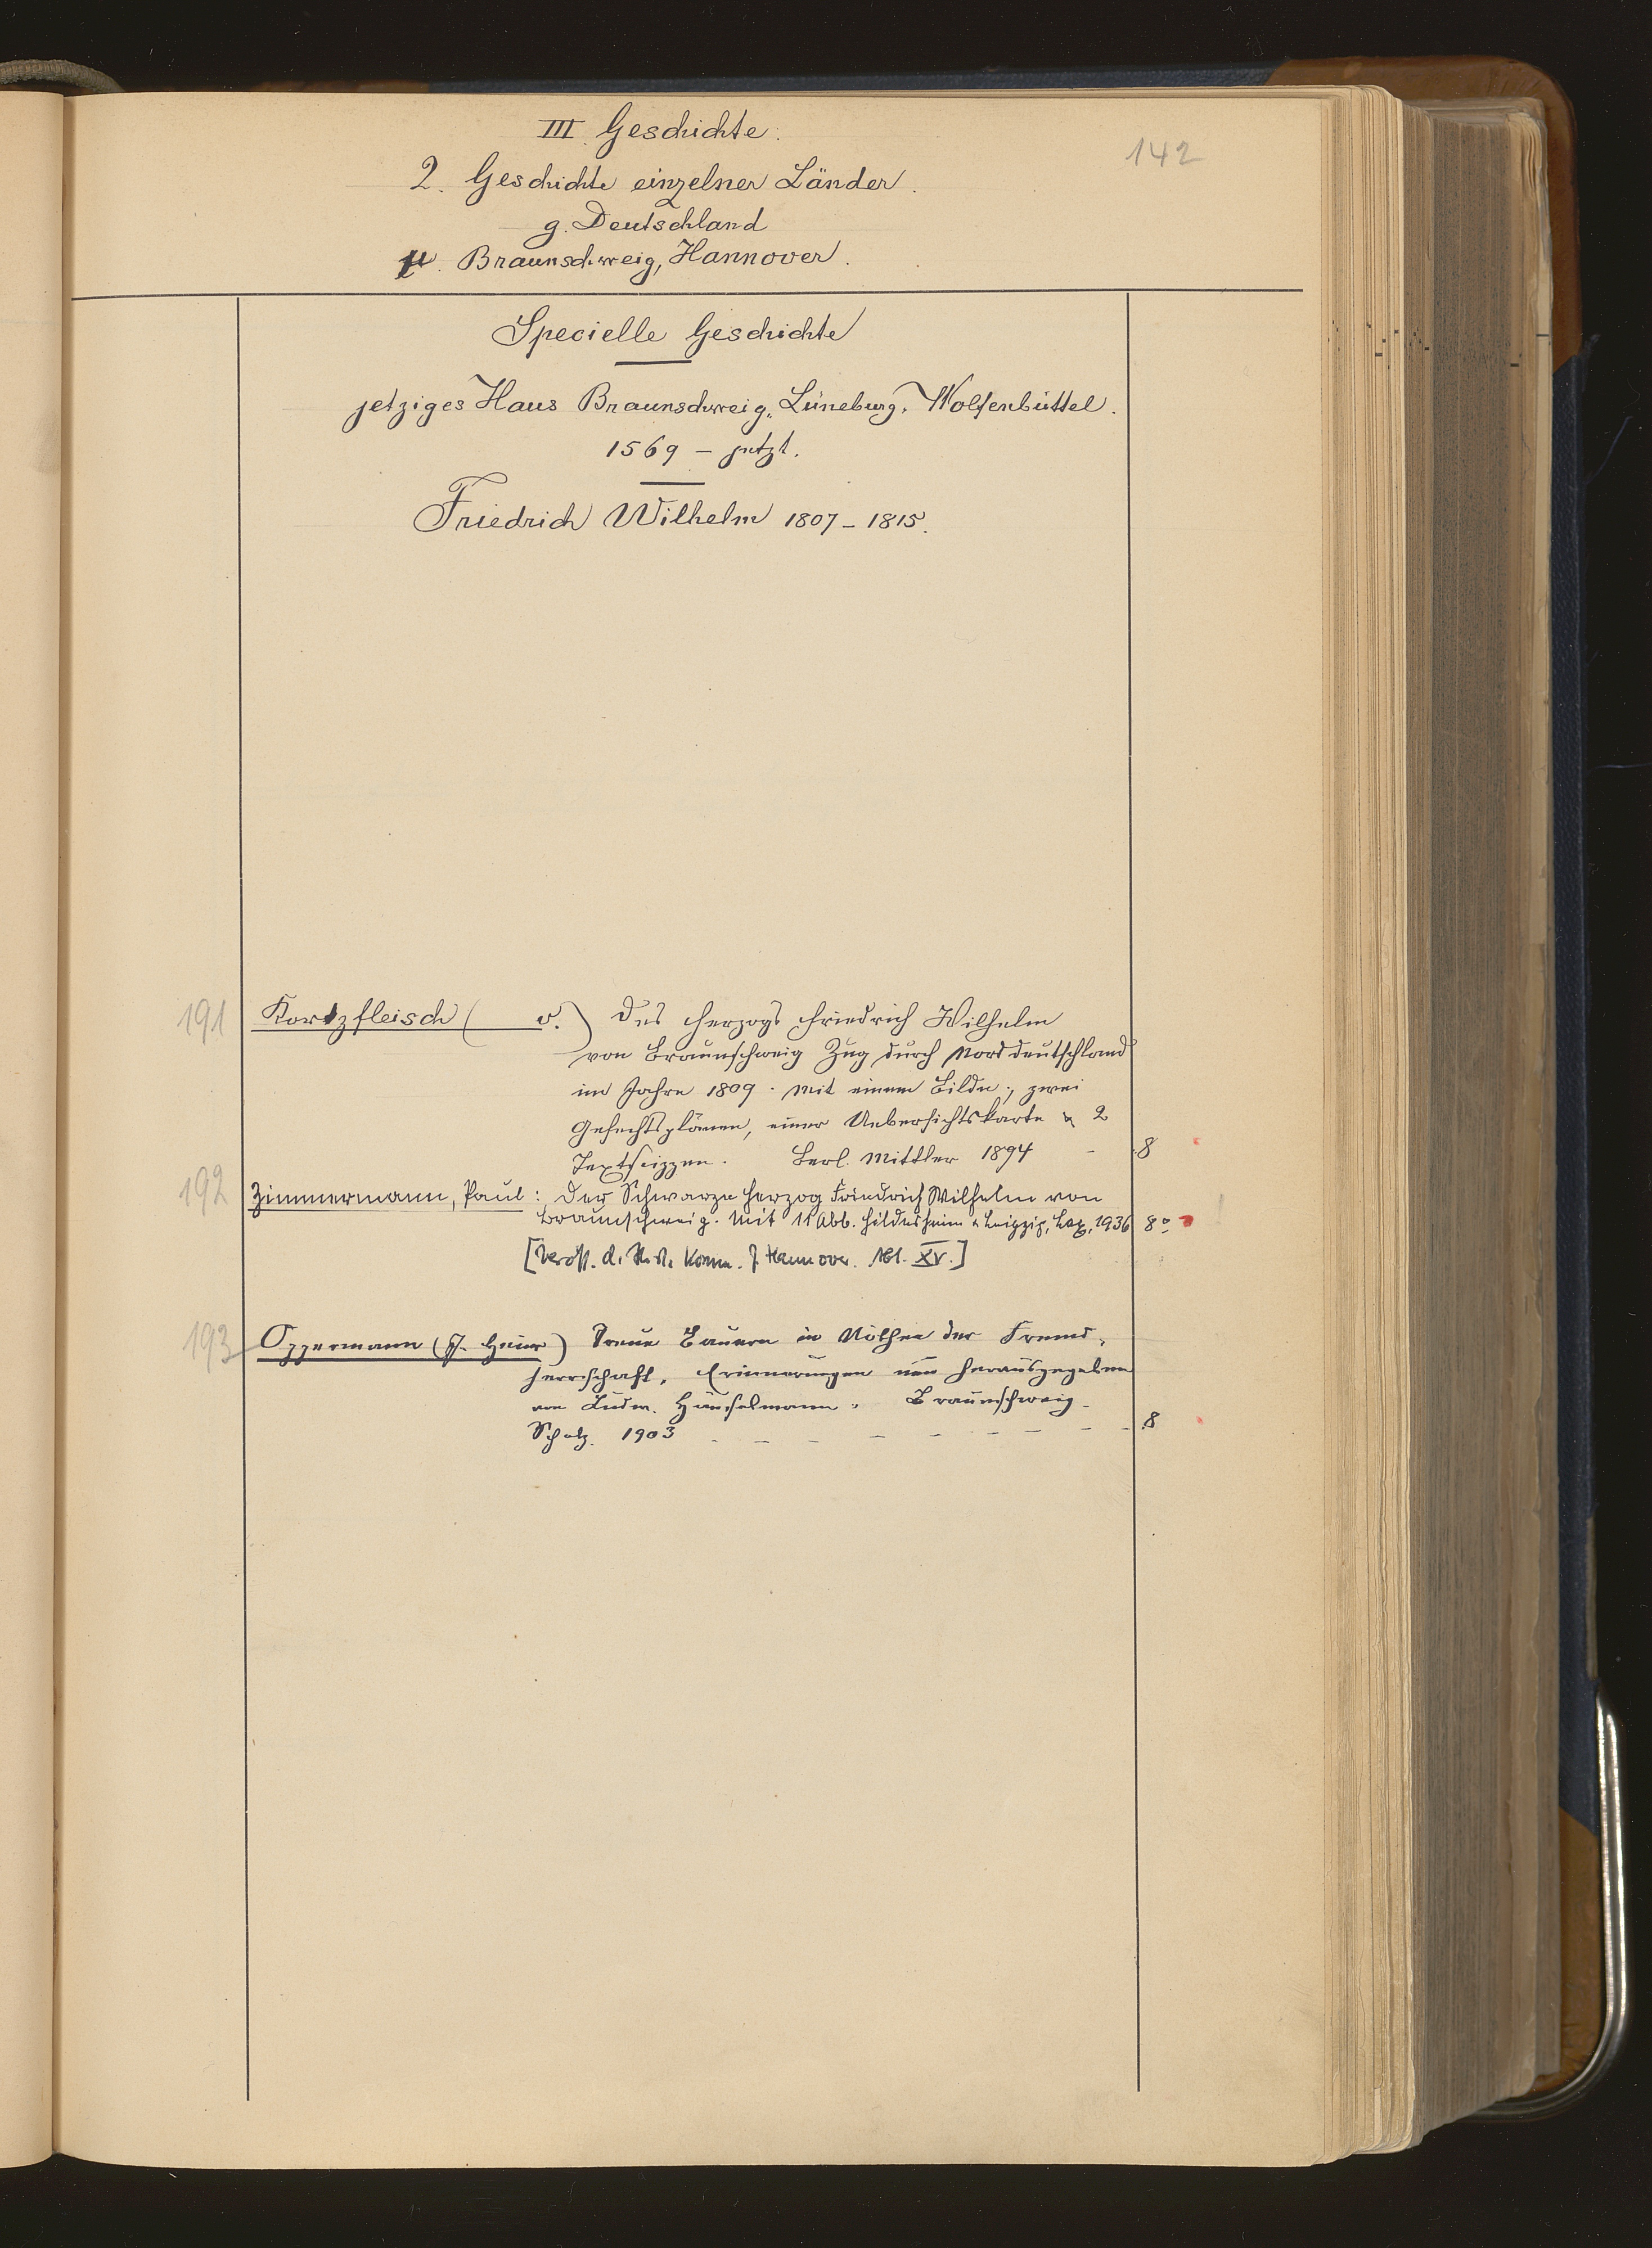 142
III. Geschichte.
2. Geschichte einzelner Länder.
g. Deutschland
μ. Braunschweig, Hannover.
Specielle Geschichte
jetziges Haus Braunschweig, Lüneburg, Wolfenbüttel.
1569 – jetzt.
Friedrich Wilhelm 1807–1815.
191 Kortzfleisch ( v.) Des Herzogs Friedrich Wilhelm
von Braunschweig Zug durch Norddeutschland
im Jahre 1809. Mit einem Bilde, zwei
Gefechtsplänen, einer Uebersichtskarte & 2
Textskizzen. Berl. Mittler 1894 – 8
192 Zimmermann, Paul: Der Schwarze Herzog Friedrich Wilhelm von
Braunschweig. Mit 11 Abb. Hildesheim & Leipzig, Lax, 1936 8°
[Veröff. d. Hist. Komm. f. Hannover. XV.]
193 Oppermann (J. Heinr) Treue Bauern in Nöthen der Fremd-
herrschaft. Erinnerungen neu herausgegeben
von Ludw. Hänselmann. Braunschweig.
Scholz. 1903 – – – – – – – – – 8